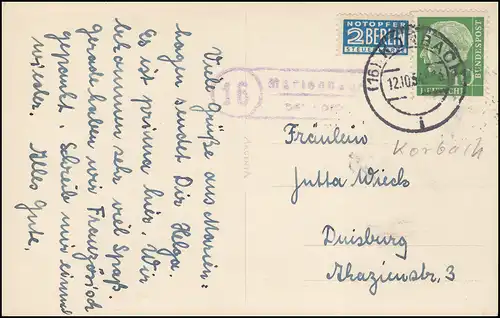 Viele Grüße aus Marien-
hagen sendet Dir Helga.
Es ist prima hier. Wir
bekommen sehr viel Spaß.
Gerade haben wir Französisch
gepaukt. Schreib mir einmal
wieder. Alles Gute,
NOTOPFER
2 BERLIN
STEUERMARKE
DEUTSCHE
BUNDESPOST
(16) KORBACH
12.10.5
16
Marienhagen
Korbach
Fräulein
Jutta Wieck
Duisburg
Akazienstr. 3